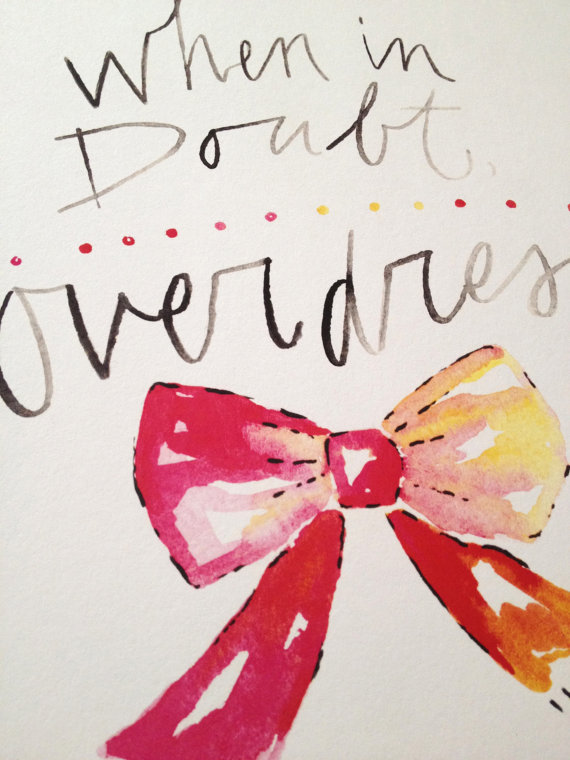 when in
Doubt,
overdres